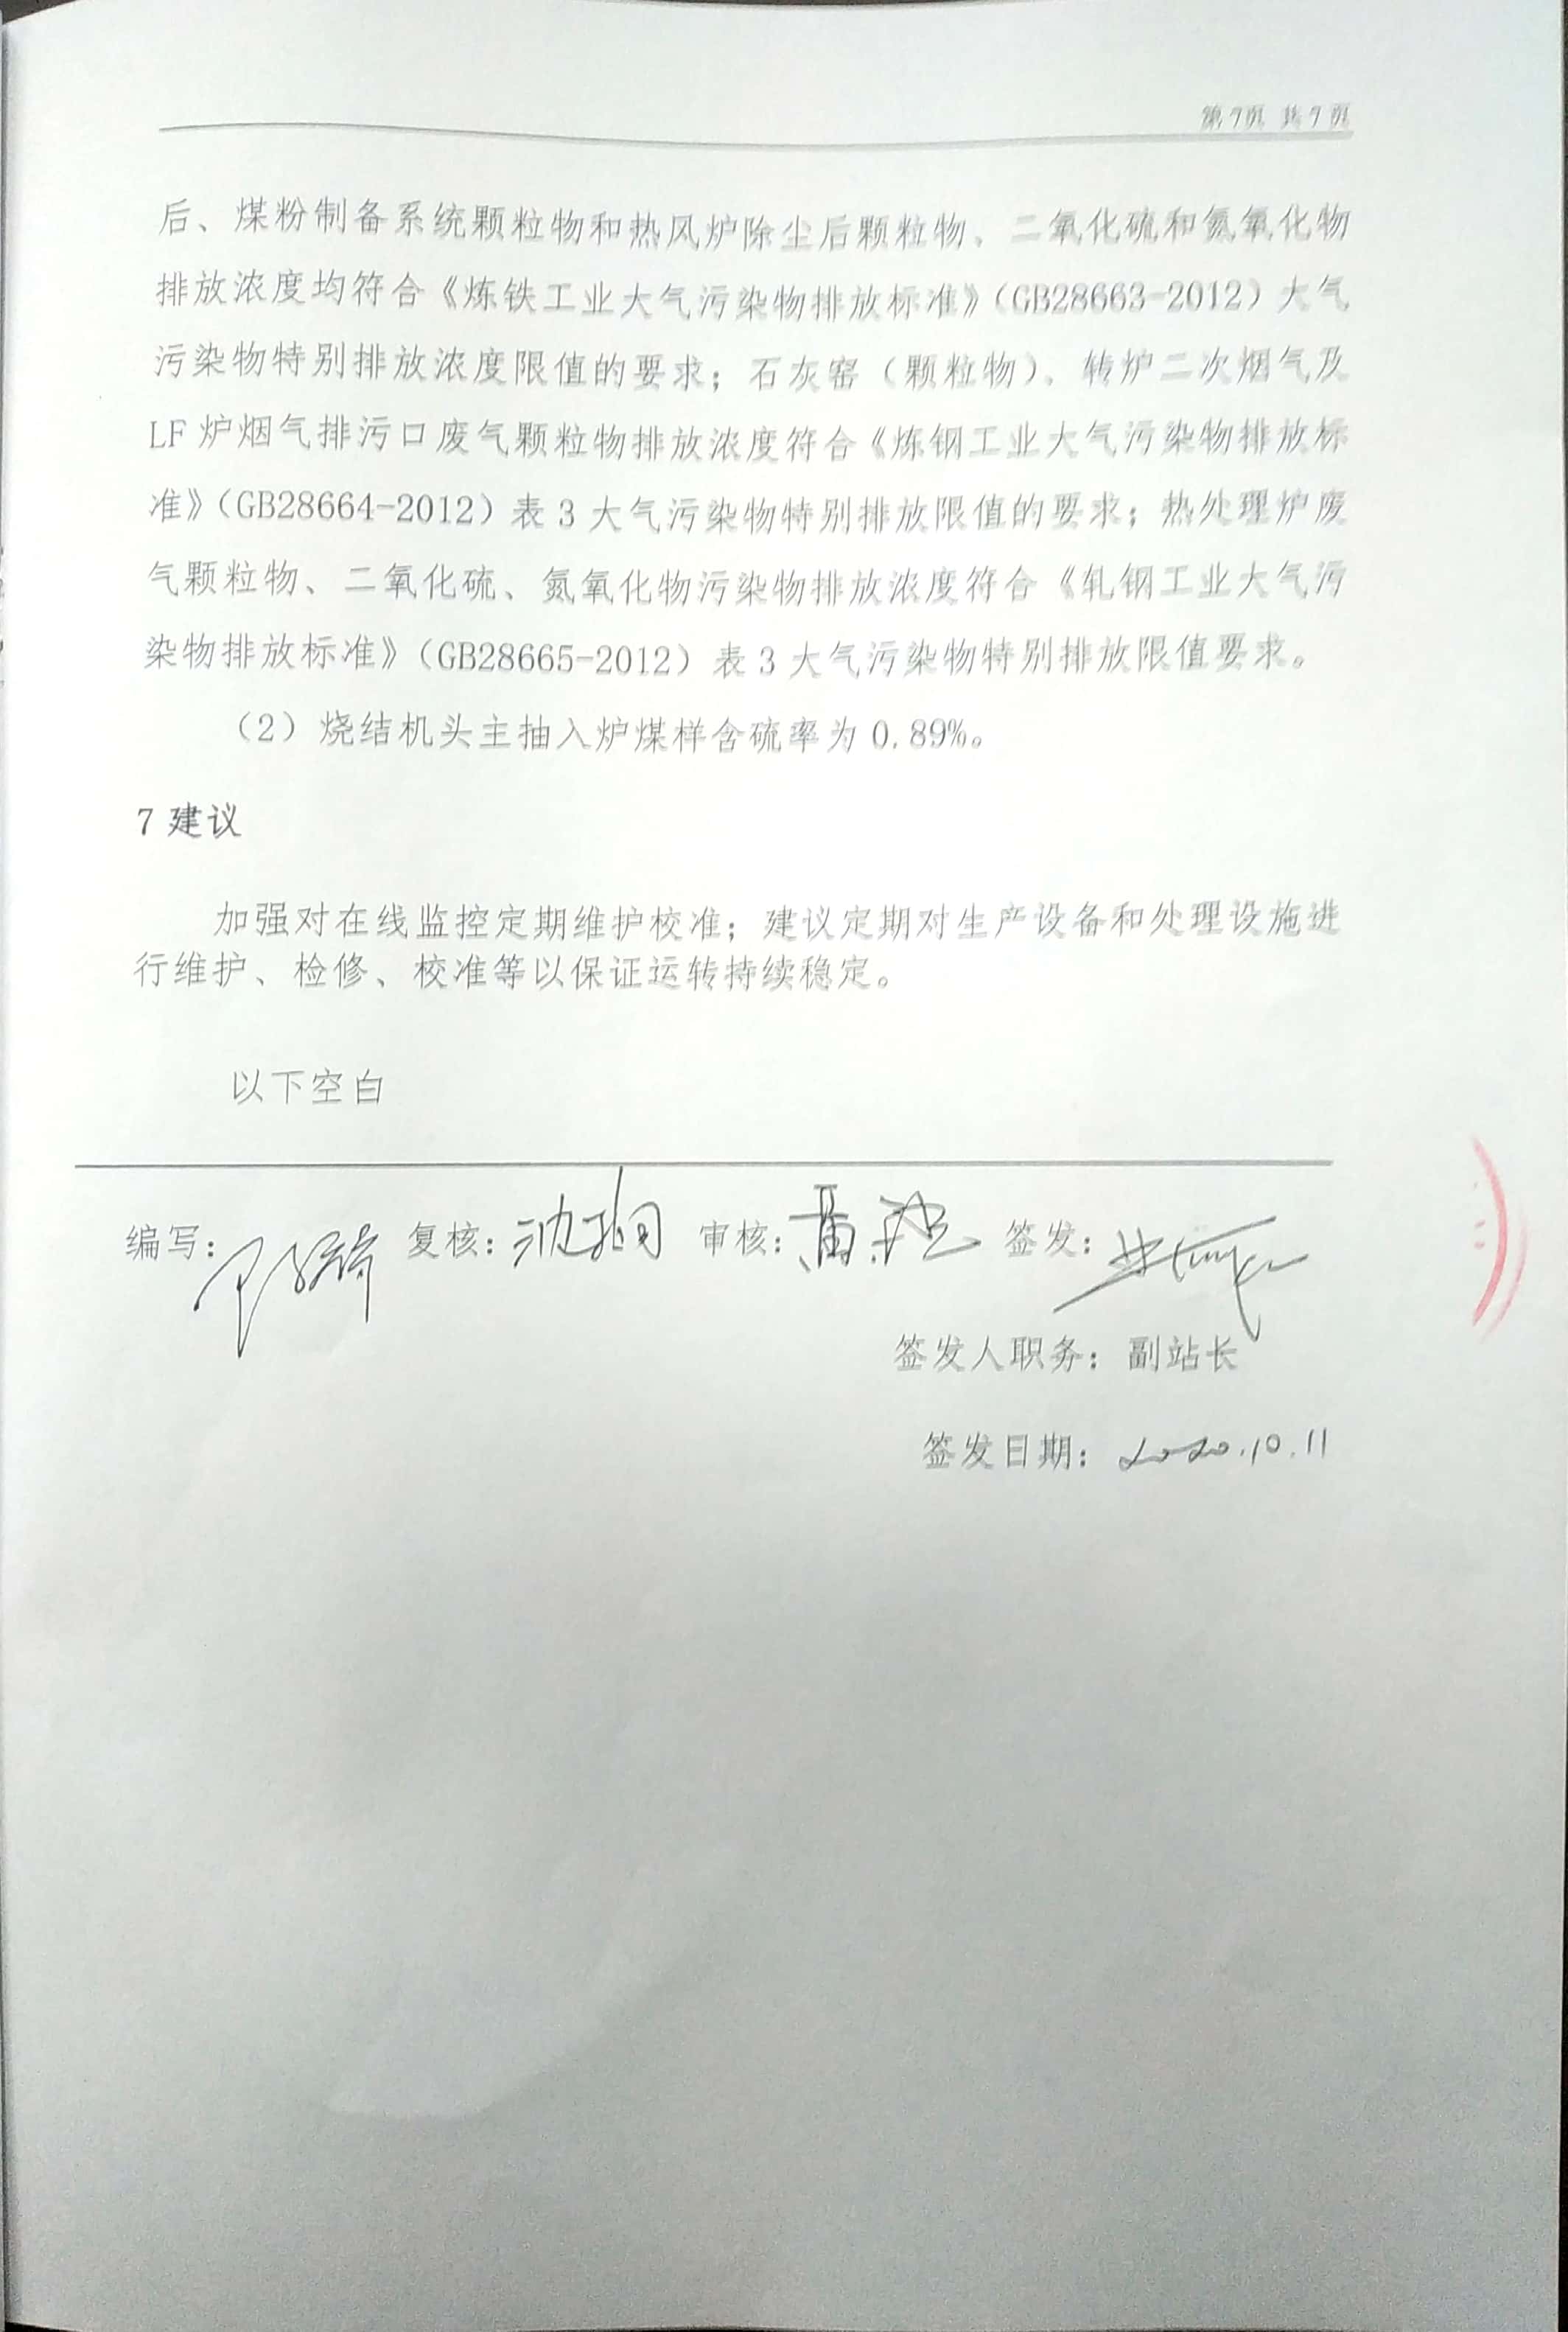 第7页 共7页
后、煤粉制备系统颗粒物和热风炉除尘后颗粒物、二氧化硫和氮氧化物
排放浓度均符合《炼铁工业大气污染物排放标准》（GB28663-2012）大气
污染物特别排放浓度限值的要求；石灰窑（颗粒物）、转炉二次烟气及
LF炉烟气排污口废气颗粒物排放浓度符合《炼钢工业大气污染物排放标
准》（GB28664-2012）表3大气污染物特别排放限值的要求；热处理炉废
气颗粒物、二氧化硫、氮氧化物污染物排放浓度符合《轧钢工业大气污
染物排放标准》（GB28665-2012）表3大气污染物特别排放限值要求。
（2）烧结机头主抽入炉煤样含硫率为0.89%。
7 建议
加强对在线监控定期维护校准；建议定期对生产设备和处理设施进
行维护、检修、校准等以保证运转持续稳定。
以下空白
编写： 复核： 审核： 签发：
签发人职务：副站长
签发日期：2020.10.11